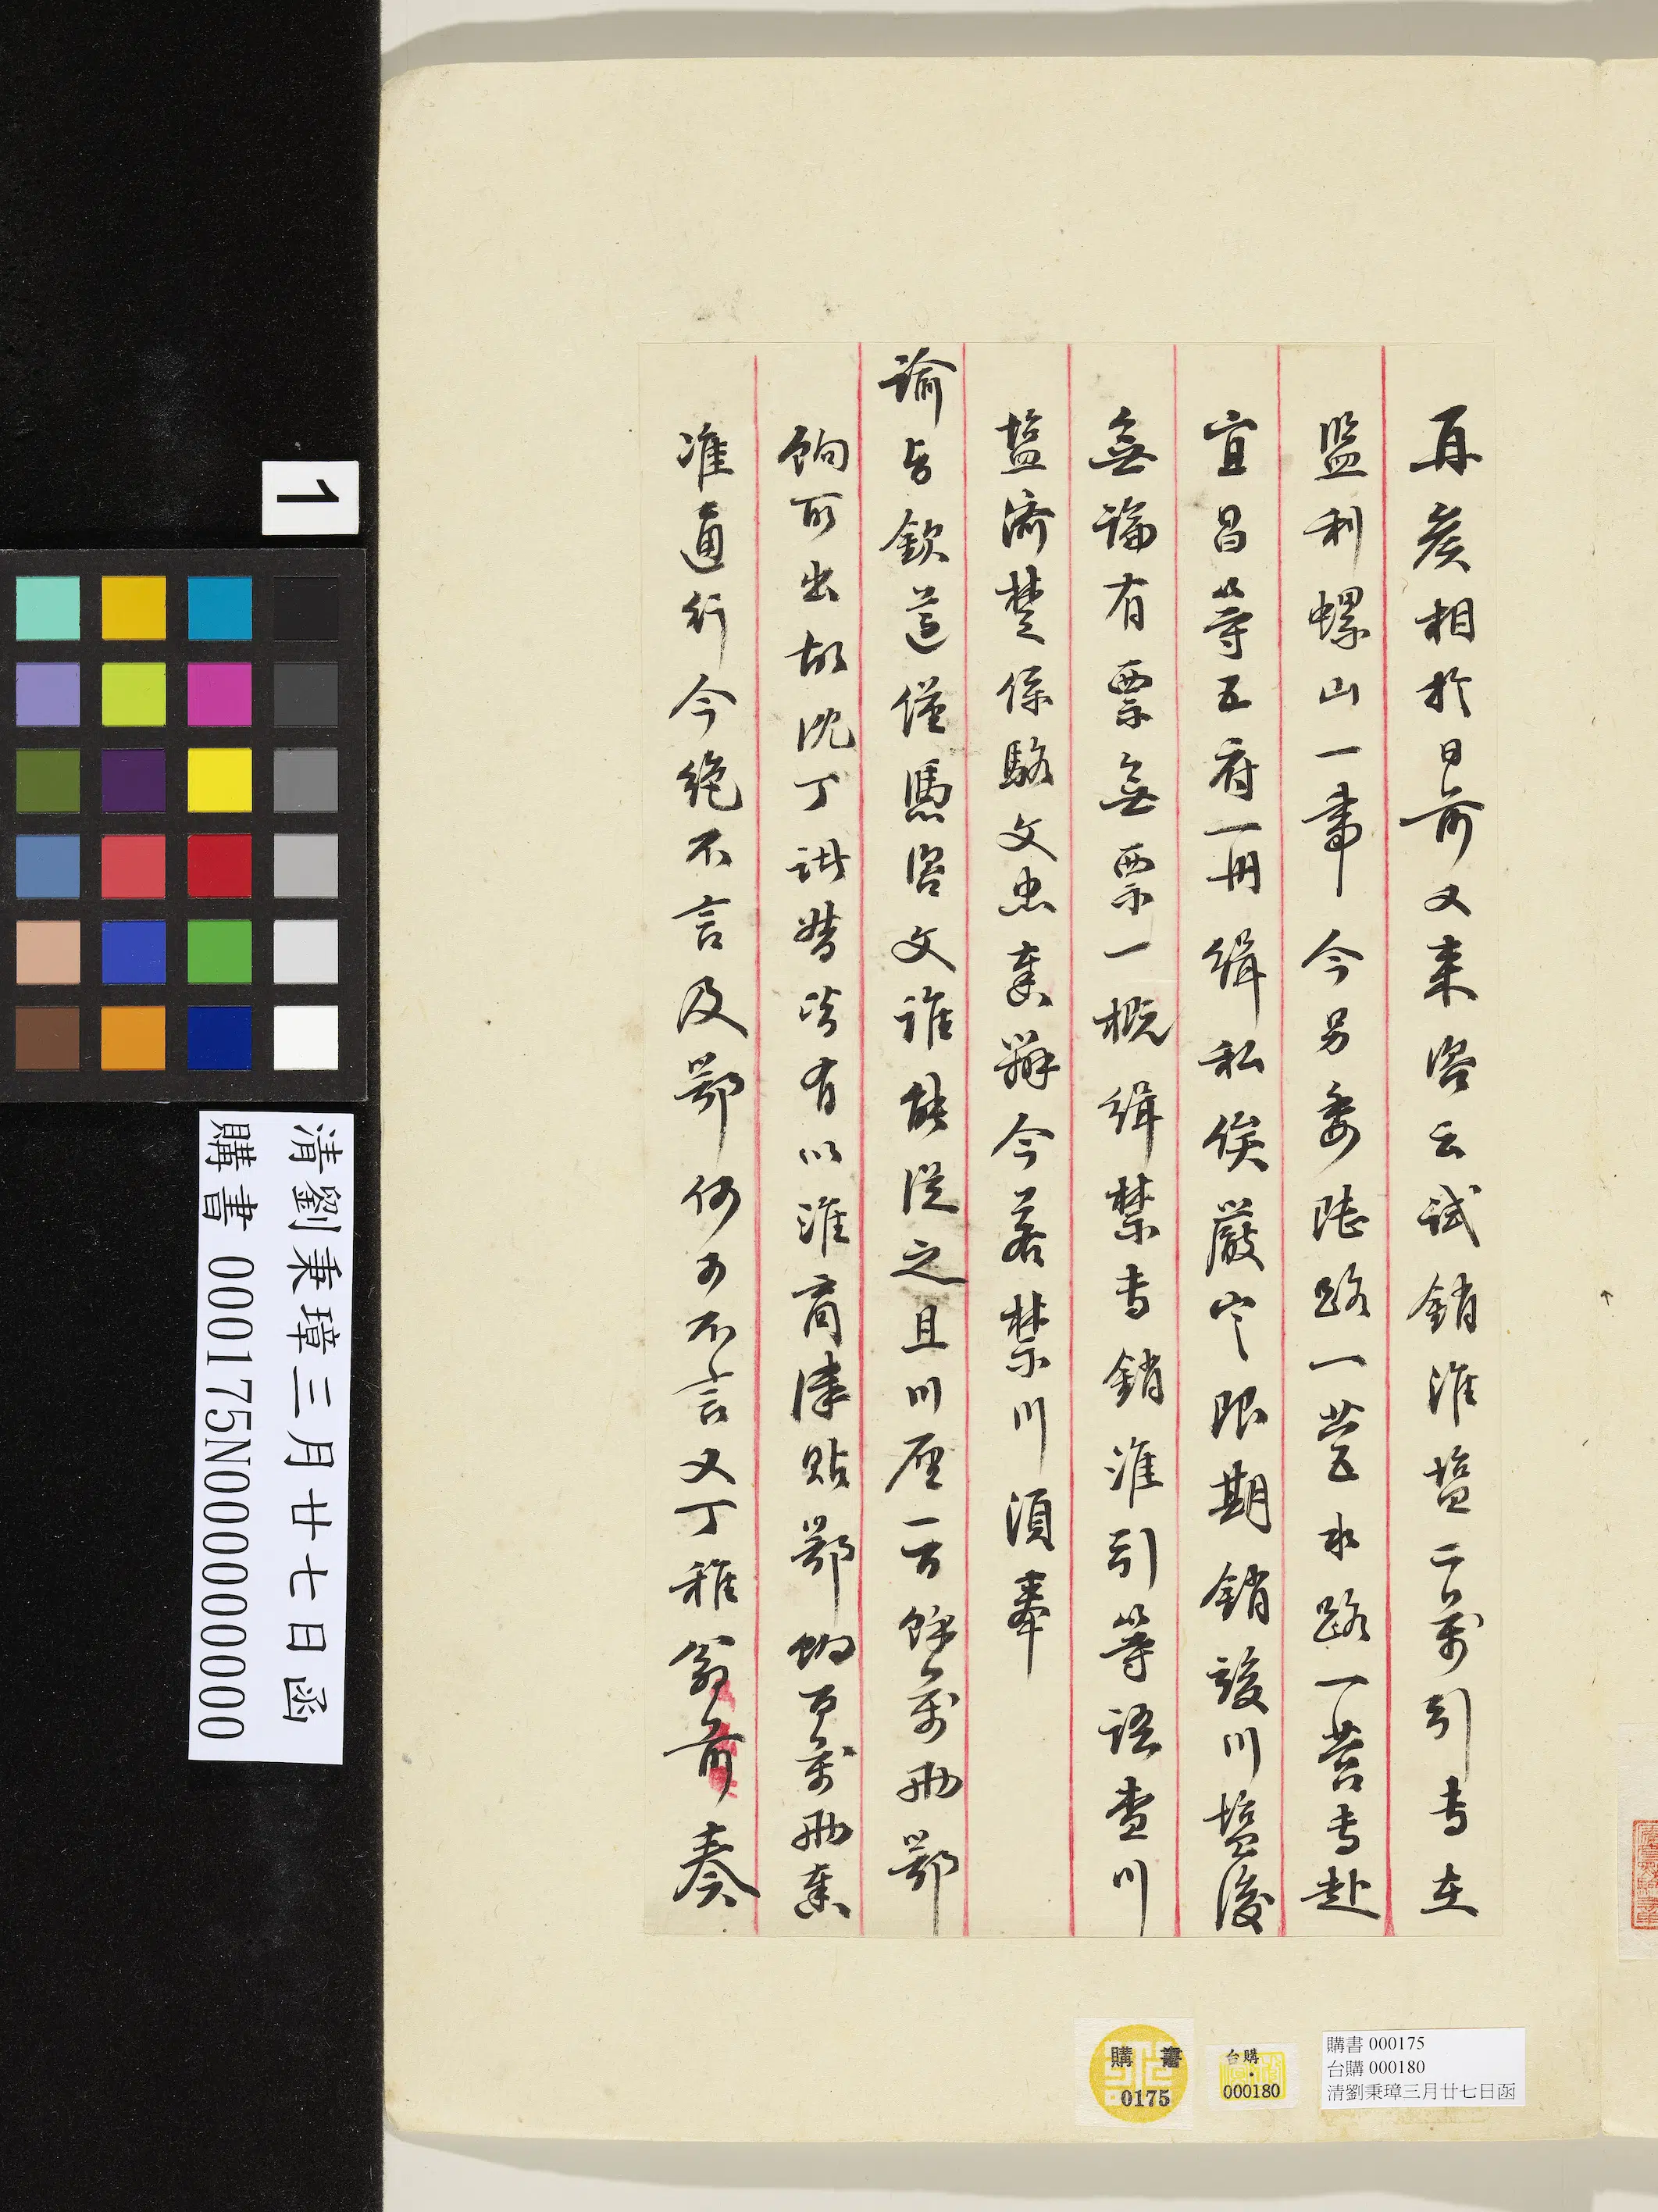 再侯相於日前又來咨云試銷淮塩二萬引专在
監利螺山一事今另委陸路一營水路一营专赴
宜昌等五府一册緝私俟嚴定限期銷竣川塩後
無論有票無票一概緝禁专銷淮引等語查川
塩濟楚係駱文忠奏辦今若禁川須奉
諭旨欽遵僅馮咨文誰能從之且川厘一百餘萬兩鄂
餉所出故沈丁諸督皆有以淮商津貼鄂餉百萬兩奏
准通行今絶不言及鄂何可不言又丁稚翁前奏
1
清劉秉璋三月廿七日函
購書 000175N000000000
購書
0175
台購
000180
購書 000175
台購 000180
清劉秉璋三月廿七日函